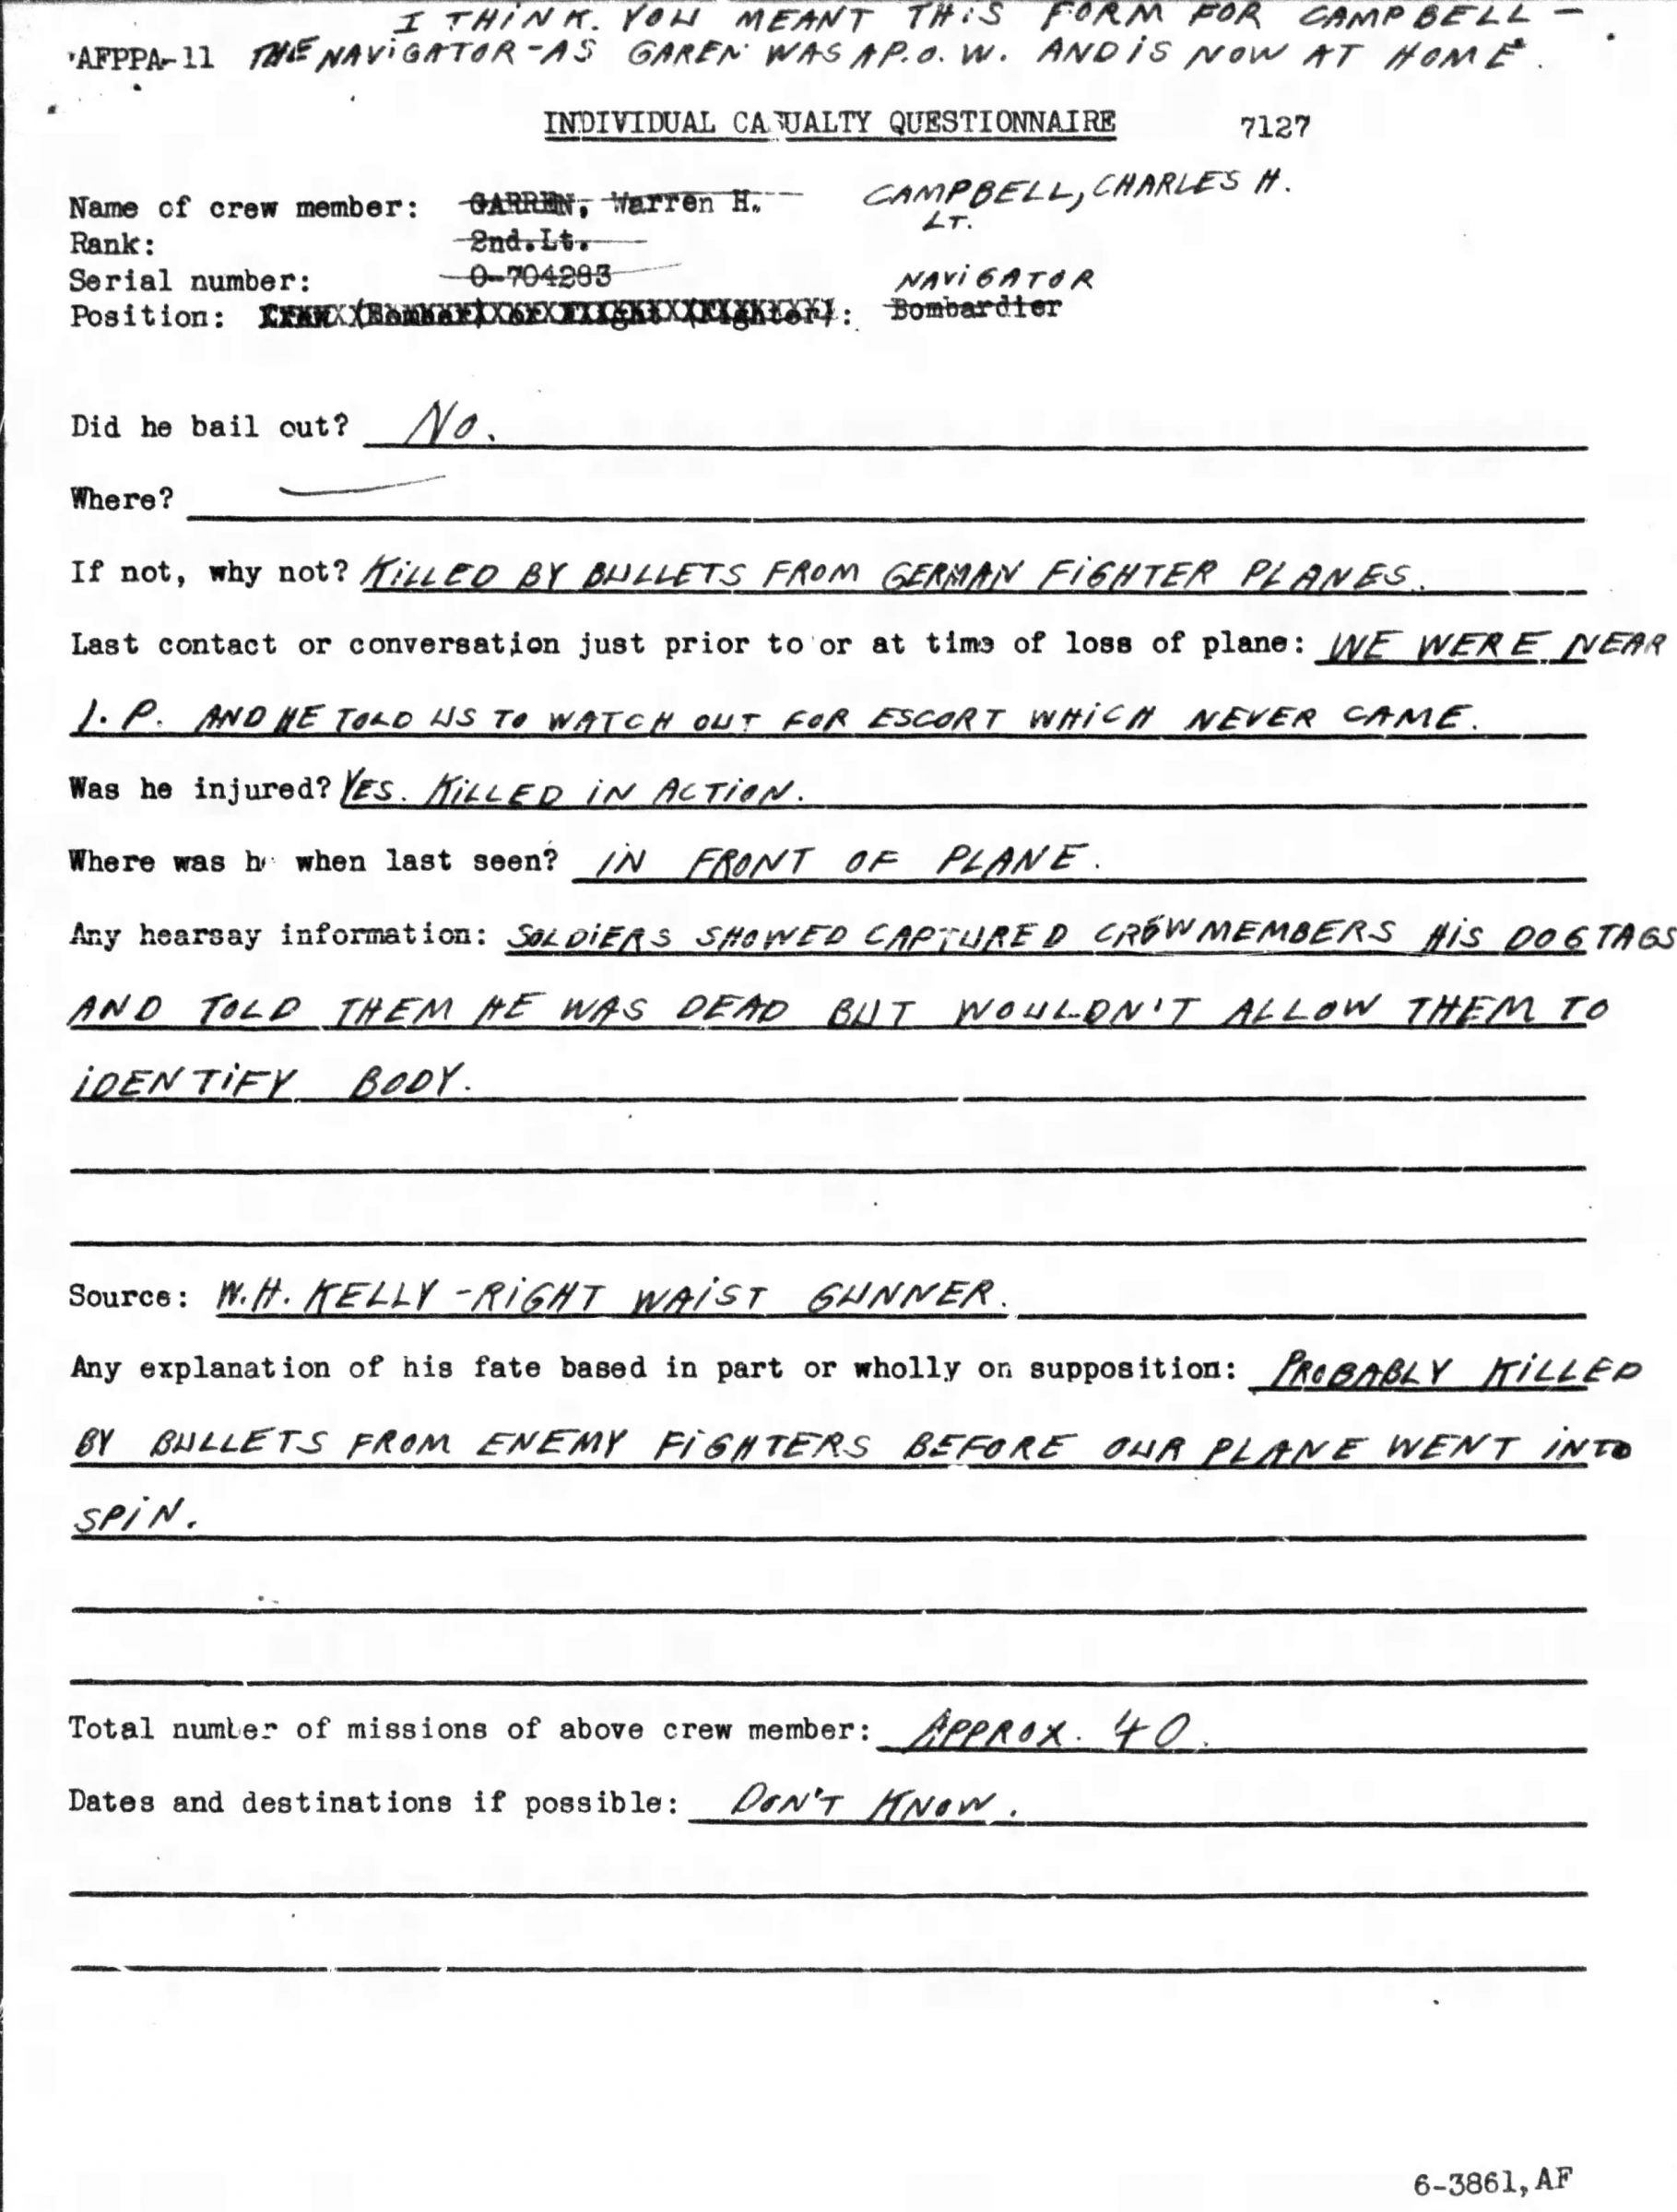 I THINK. YOU MEANT THIS FORM FOR CAMPBELL –
AFPPA-11 THE NAVIGATOR – AS GAREN WAS A P.O.W. AND IS NOW AT HOME.
INDIVIDUAL CASUALTY QUESTIONNAIRE 7127
Name of crew member: GARREN, Warren H. CAMPBELL, CHARLES H.
Rank: 2nd.Lt. LT.
Serial number: O-704283
Position: (Bomber) or Flight (Fighter): Bombardier NAVIGATOR
Did he bail out? NO.
Where? —
If not, why not? KILLED BY BULLETS FROM GERMAN FIGHTER PLANES.
Last contact or conversation just prior to or at time of loss of plane: WE WERE NEAR
I.P. AND HE TOLD US TO WATCH OUT FOR ESCORT WHICH NEVER CAME.
Was he injured? YES. KILLED IN ACTION.
Where was he when last seen? IN FRONT OF PLANE.
Any hearsay information: SOLDIERS SHOWED CAPTURED CREWMEMBERS HIS DOGTAGS
AND TOLD THEM HE WAS DEAD BUT WOULDN'T ALLOW THEM TO
IDENTIFY BODY.
Source: W.H. KELLY – RIGHT WAIST GUNNER.
Any explanation of his fate based in part or wholly on supposition: PROBABLY KILLED
BY BULLETS FROM ENEMY FIGHTERS BEFORE OUR PLANE WENT INTO
SPIN.
Total number of missions of above crew member: APPROX. 40.
Dates and destinations if possible: DON'T KNOW.
6-3861, AF